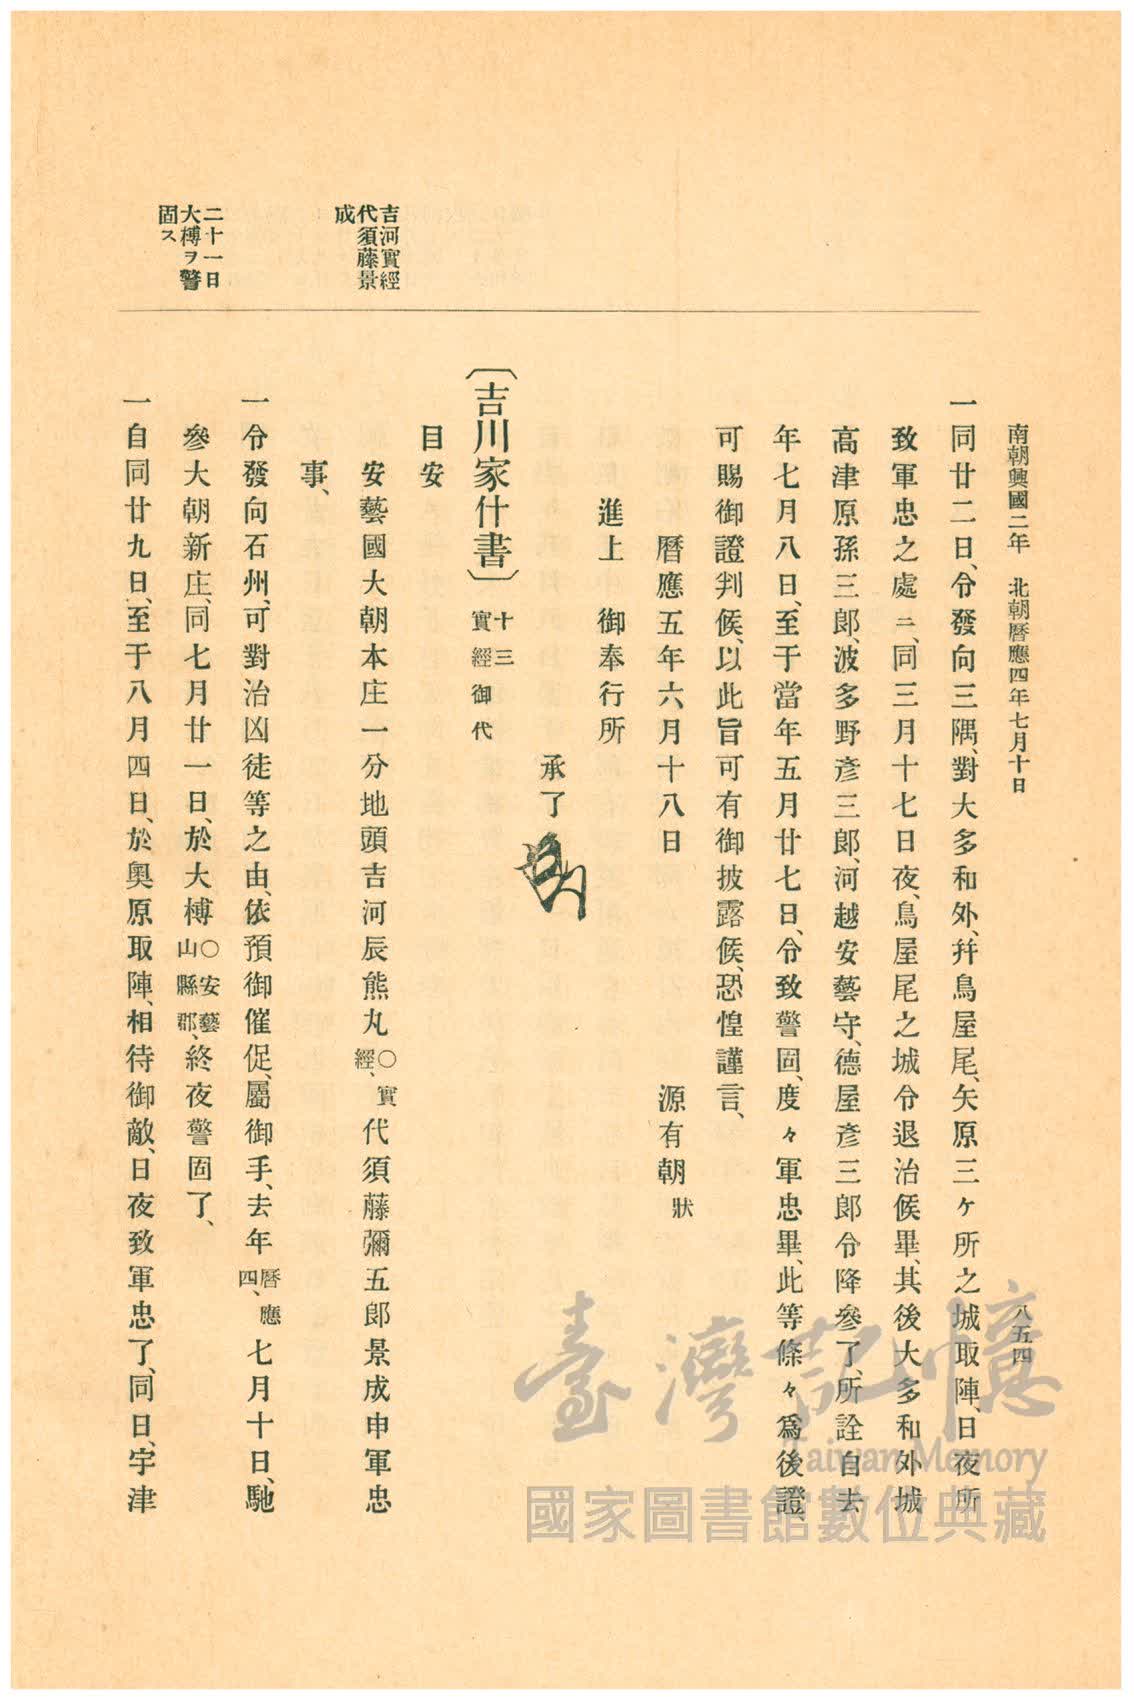 南朝興國二年 北朝曆應四年七月十日
八五四
一同廿二日、令發向三隅、對大多和外、幷鳥屋尾、矢原三ケ所之城取陣、日夜所
致軍忠之處ニ、同三月十七日夜、鳥屋尾之城令退治候畢、其後大多和外城
高津原孫三郎、波多野彥三郎、河越安藝守、德屋彥三郎令降參了、所詮自去
年七月八日、至于當年五月廿七日、令致警固、度々軍忠畢、此等條々爲後證、
可賜御證判候、以此旨可有御披露候、恐惶謹言、
曆應五年六月十八日 源有朝狀
進上 御奉行所
承了
〔吉川家什書〕 十三 實經御代
目安
吉河實經
代須藤景
成
安藝國大朝本庄一分地頭吉河辰熊丸○實經、代須藤彌五郎景成申軍忠
事、
一令發向石州、可對治凶徒等之由、依預御催促、屬御手、去年曆應四、七月十日、馳
二十一日
大榑ヲ警
固ス
參大朝新庄、同七月廿一日、於大榑○安藝山縣郡、終夜警固了、
一自同廿九日、至于八月四日、於奧原取陣、相待御敵、日夜致軍忠了、同日、宇津
臺灣記憶
Taiwan Memory
國家圖書館數位典藏